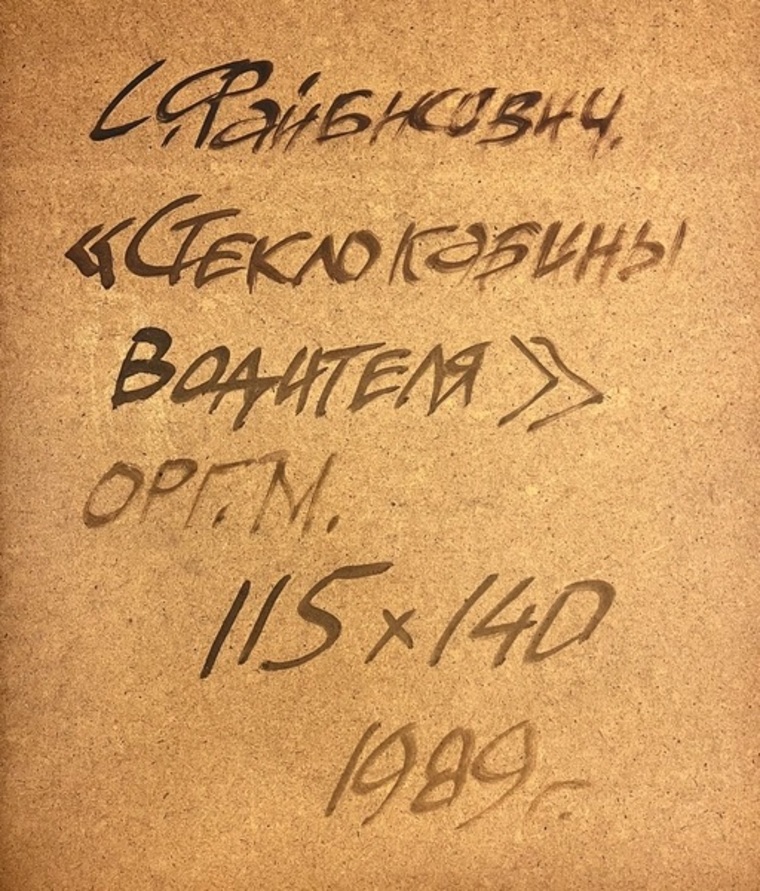 С. Файбисович.
«Стекло кабины
водителя»
орг. м.
115 x 140
1989 г.